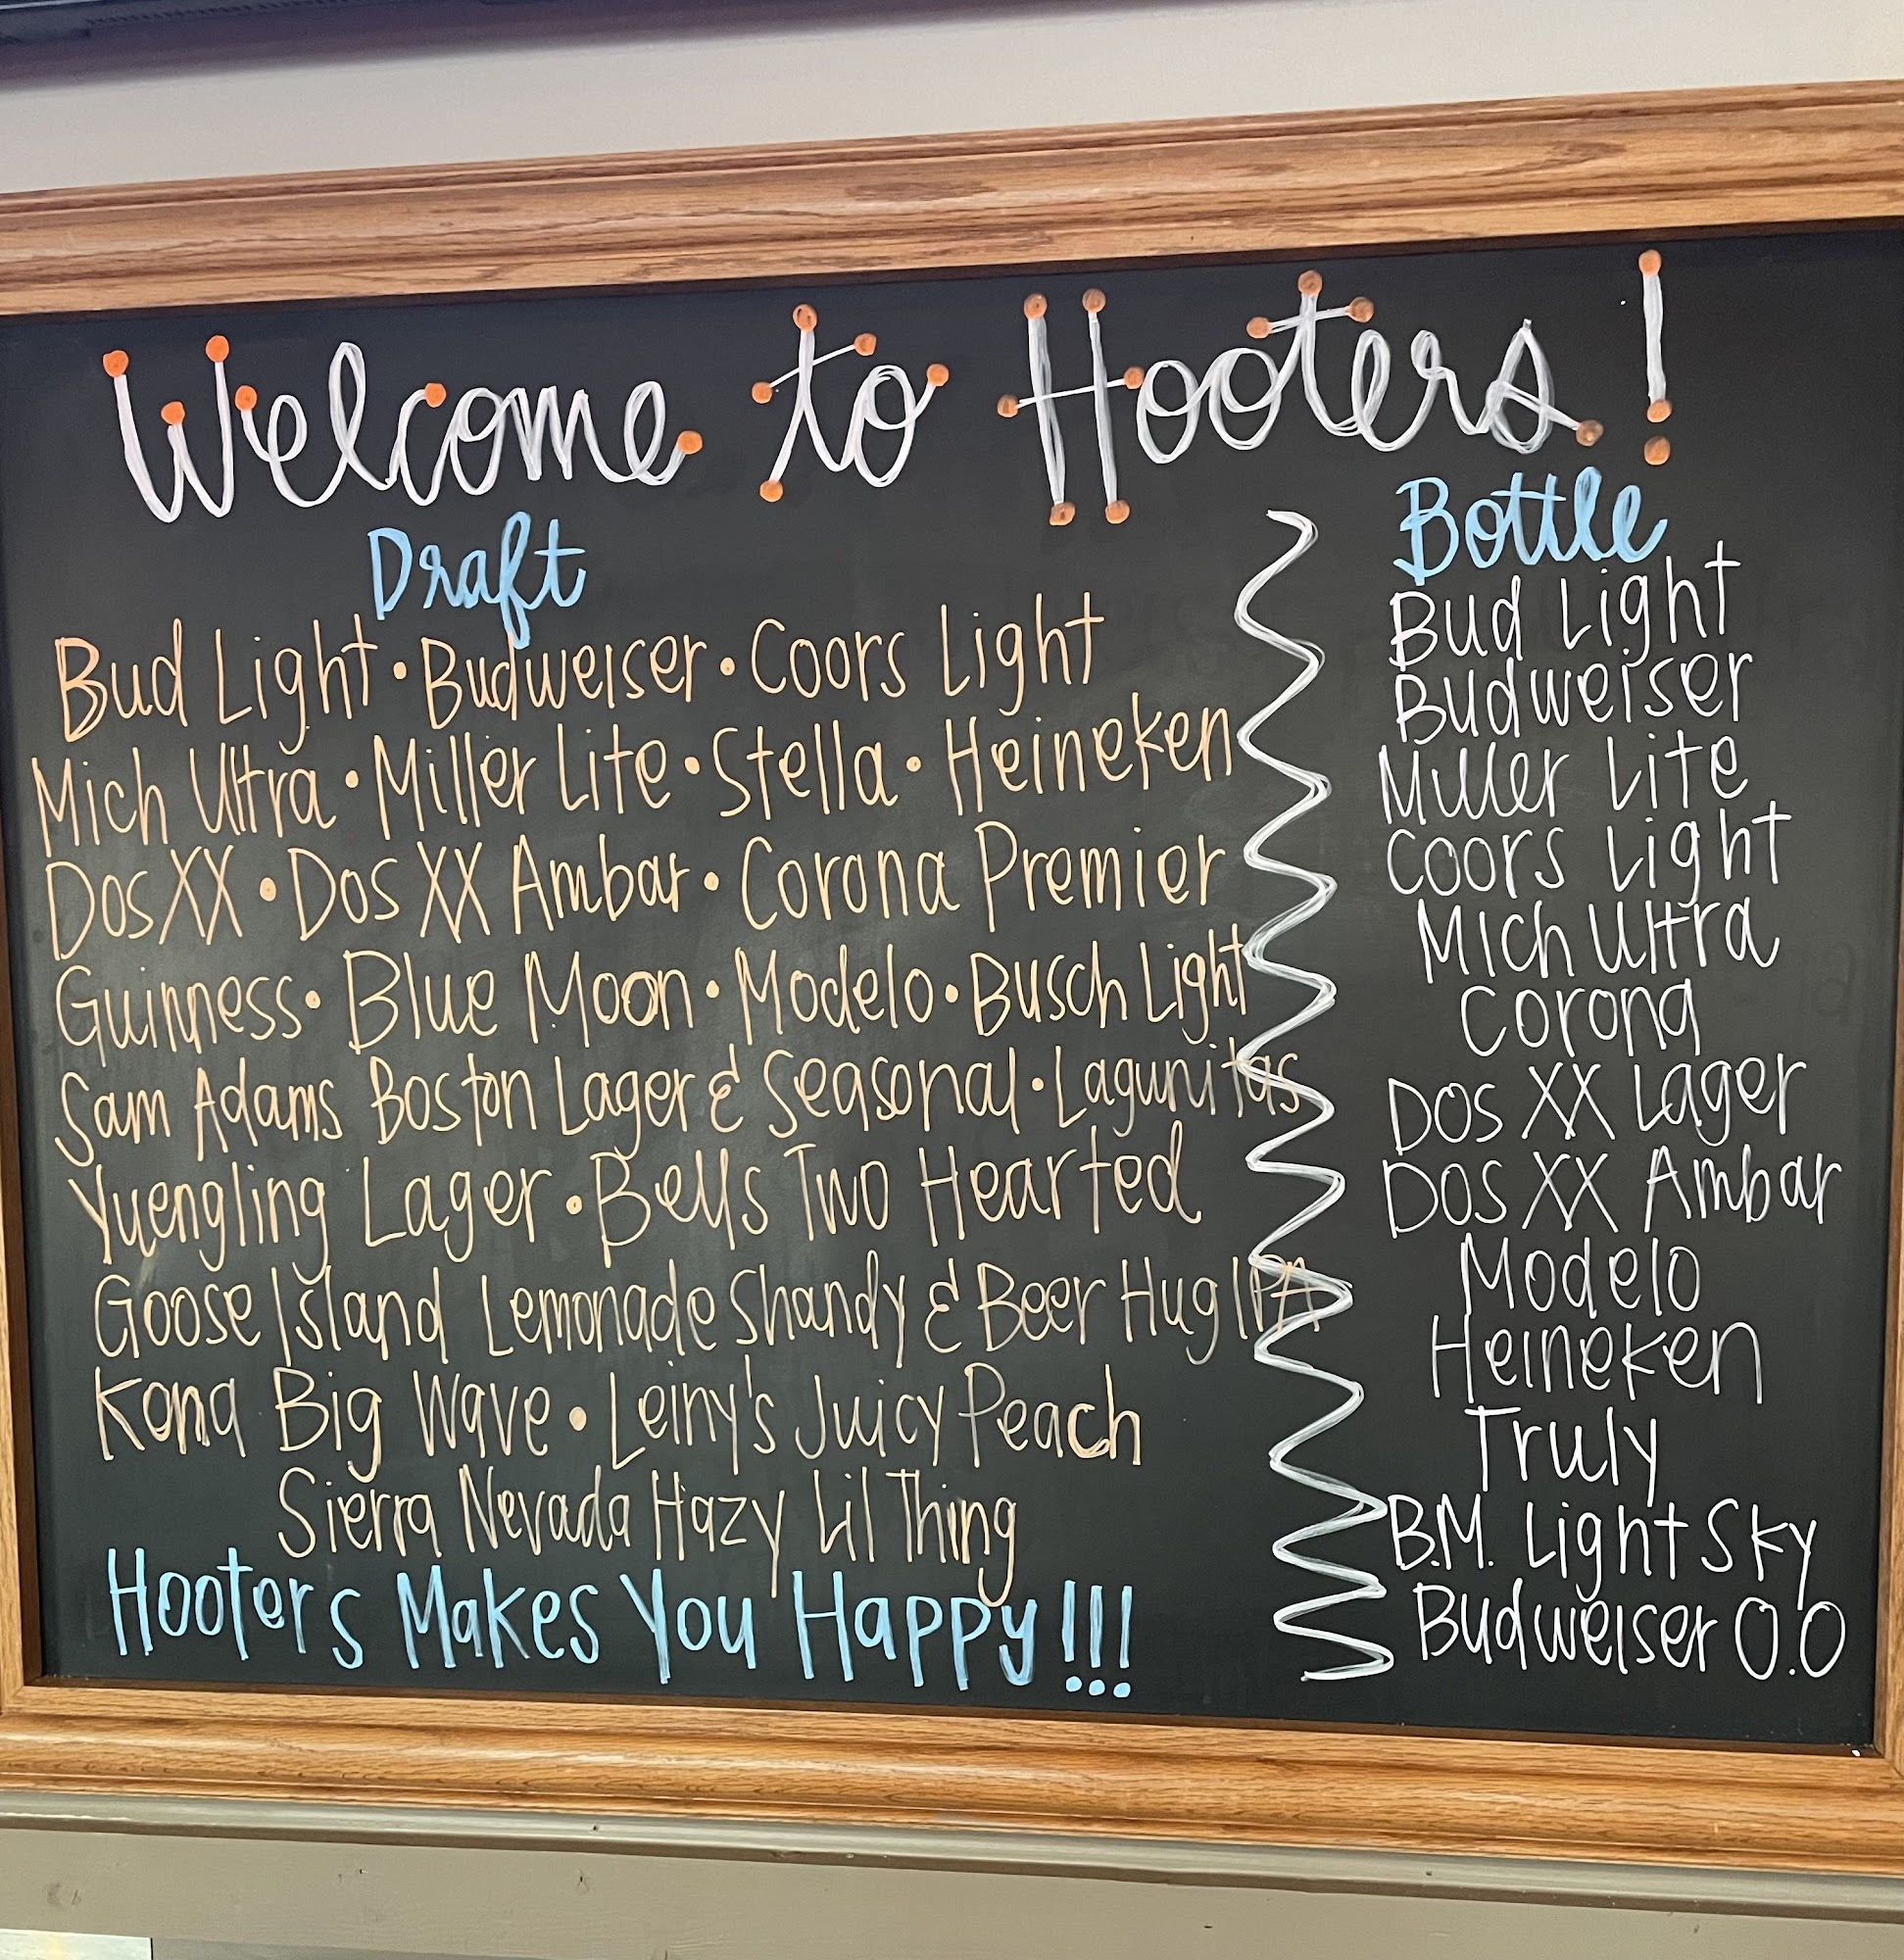 Welcome to Hooters!
Draft
Bud Light • Budweiser • Coors Light
Mich Ultra • Miller Lite • Stella • Heineken
Dos XX • Dos XX Ambar • Corona Premier
Guinness • Blue Moon • Modelo • Busch Light
Sam Adams Boston Lager & Seasonal • Lagunitas
Yuengling Lager • Bells Two Hearted
Goose Island Lemonade Shandy & Beer Hug IPA
Kona Big Wave • Leiny's Juicy Peach
Sierra Nevada Hazy Lil Thing
Hooters Makes You Happy!!!
Bottle
Bud Light
Budweiser
Miller Lite
Coors Light
Mich Ultra
Corona
Dos XX Lager
Dos XX Ambar
Modelo
Heineken
Truly
B.M. Light Sky
Budweiser 0.0